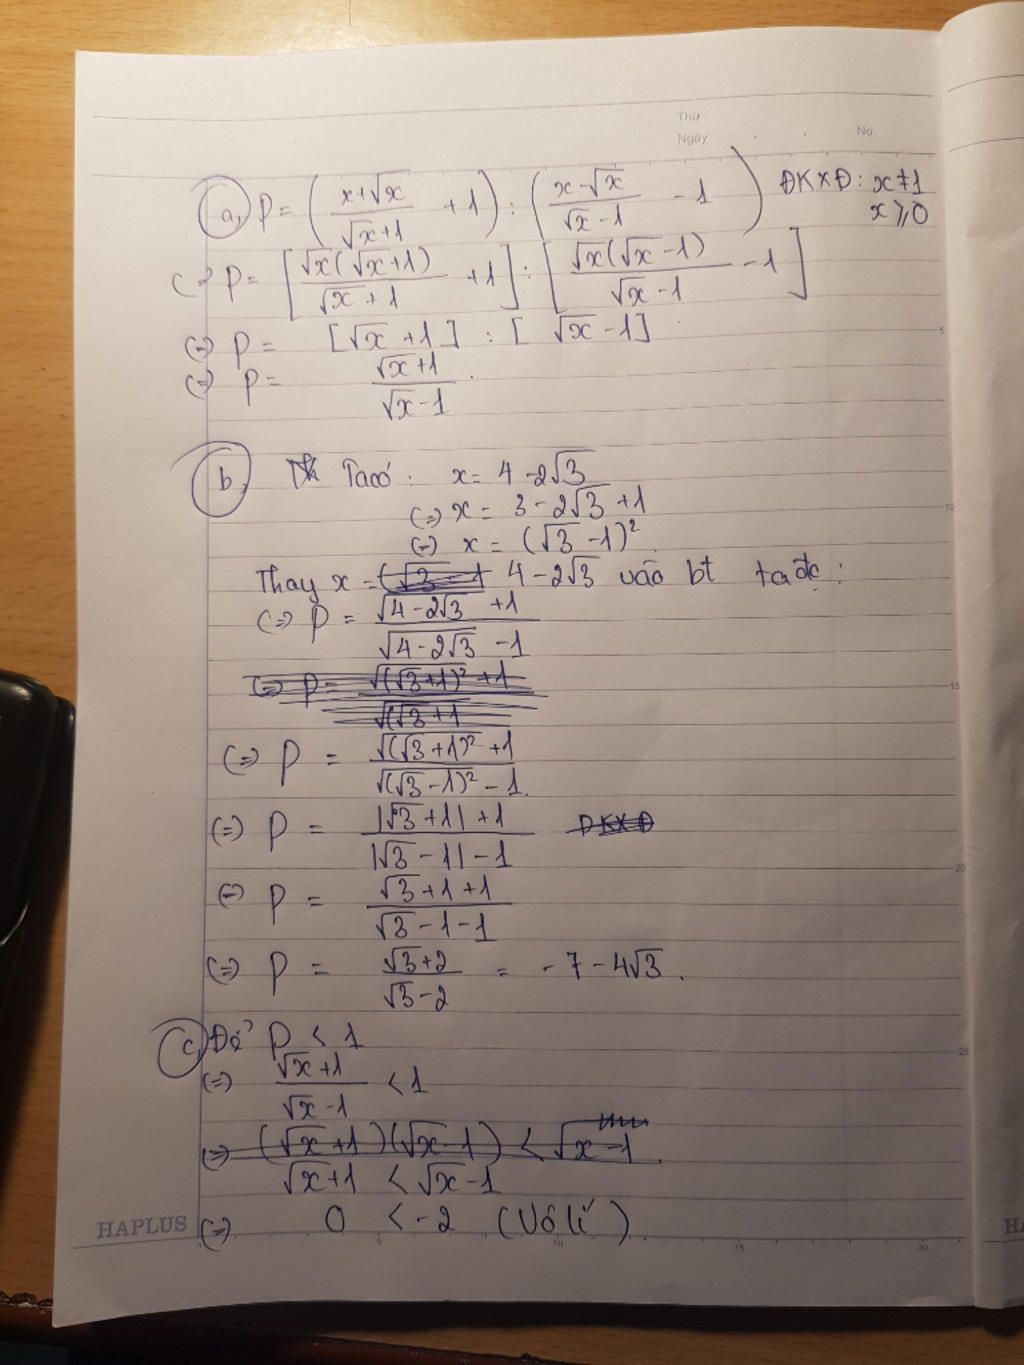 Thứ
Ngày No
a, P = ( (x+√x)/(√x+1) + 1 ) : ( (x-√x)/(√x-1) - 1 ) ĐKXĐ: x≠1
x ⩾ 0
(=) P = [ √x(√x+1)/(√x+1) +1 ] : [ √x(√x-1)/(√x-1) -1 ]
(=) P = [√x +1] : [√x -1]
(=) P = (√x+1)/(√x-1).
b, Ta có: x = 4-2√3
(=) x = 3-2√3+1
(=) x = (√3-1)²
Thay x = 4-2√3 vào bt ta đc:
(=) P = (√(4-2√3) +1)/(√(4-2√3) -1)
(=) P = (√(√3+1)² +1)/(√(√3+1
(=) P = (√(√3+1)² +1)/(√(√3-1)² -1.)
(=) P = (|√3+1|+1)/(|√3-1|-1) ĐKXĐ
(=) P = (√3+1+1)/(√3-1-1)
(=) P = (√3+2)/(√3-2) = -7-4√3.
c, Để P < 1
(=) (√x+1)/(√x-1) < 1
(=) (√x+1)(√x-1) < √x-1
√x+1 < √x-1
(=) 0 < -2 (Vô lí)
HAPLUS
5
10
15
20
25
0 5 10 15 20